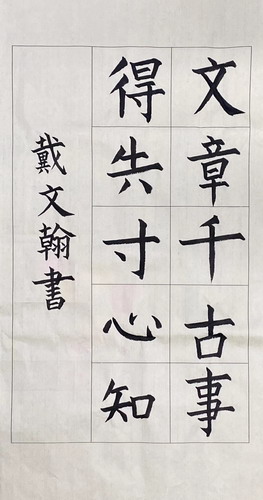 文章千古事
得失寸心知
戴文翰書